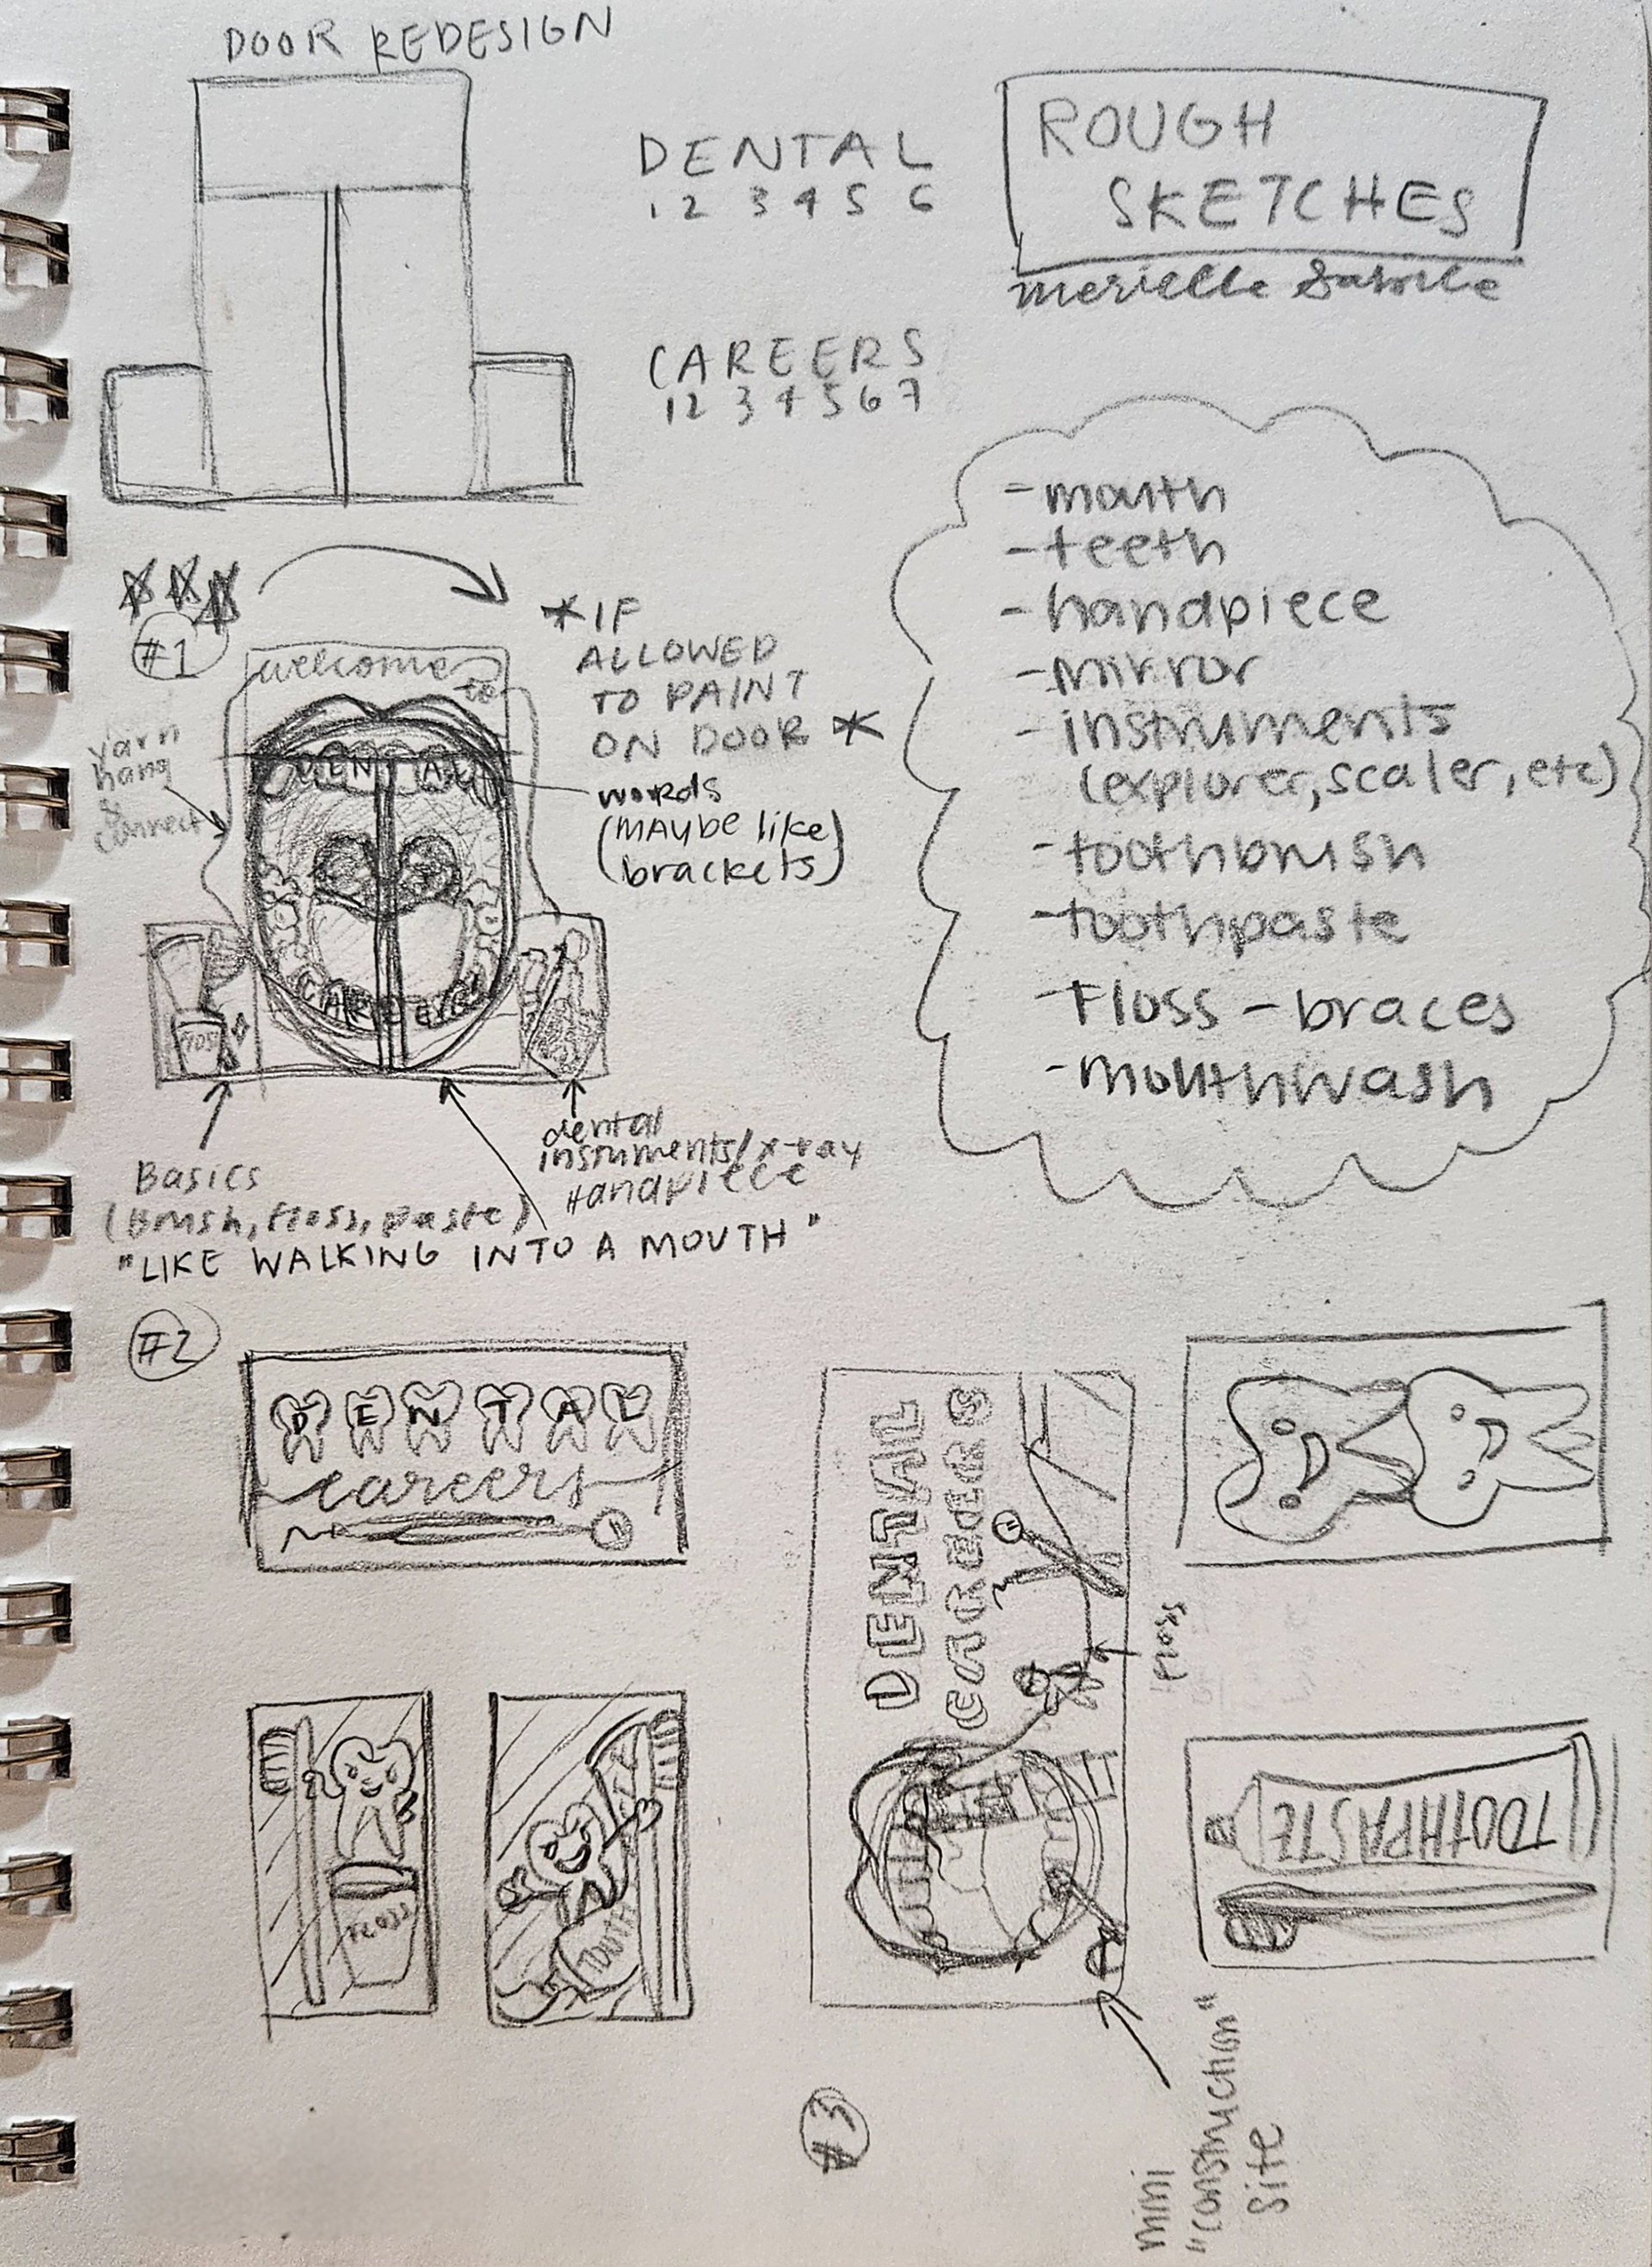 DOOR REDESIGN
DENTAL
1 2 3 4 5 6
CAREERS
1 2 3 4 5 6 7
ROUGH
SKETCHES
- mouth
- teeth
- handpiece
- Mirror
- instruments
(explorer, scaler, etc)
- toothbrush
- toothpaste
- Floss - braces
- mouthwash
#1
welcome
to
DENTAL
CAREERS
yarn
hang
&
connect
*IF
ALLOWED
TO PAINT
ON DOOR *
words
(MAYBE like)
(brackets)
FLOSS
Basics
(Brush, floss, paste)
dental
instruments/x-ray
Handpiece
"LIKE WALKING INTO A MOUTH"
#2
DENTAL
careers
FLOSS
TOOTH
#3
DENTAL
CAREERS
Floss
mini
"construction"
site
TOOTHPASTE